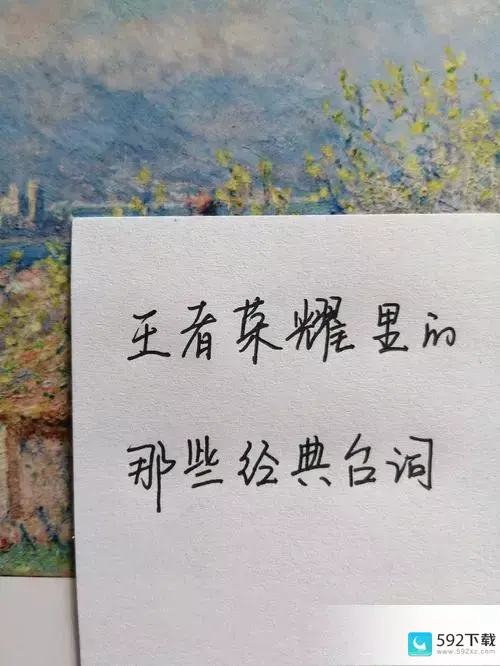 王者荣耀里的
那些经典台词
592下载
www.592xz.com